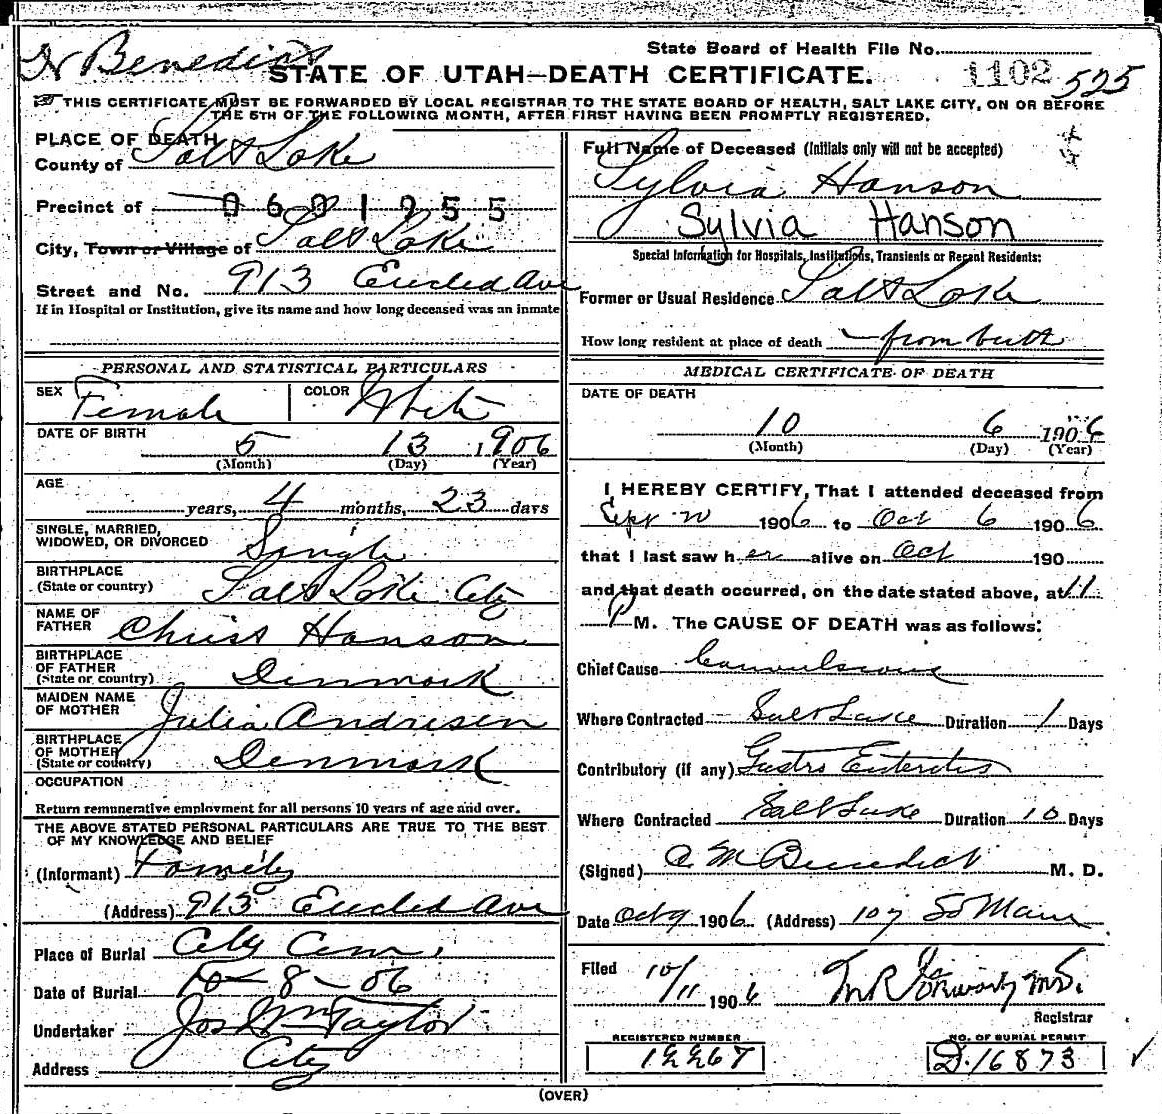 Dr Benedict
State Board of Health File No.
STATE OF UTAH—DEATH CERTIFICATE.
1102 525
THIS CERTIFICATE MUST BE FORWARDED BY LOCAL REGISTRAR TO THE STATE BOARD OF HEALTH, SALT LAKE CITY, ON OR BEFORE
THE 5TH OF THE FOLLOWING MONTH, AFTER FIRST HAVING BEEN PROMPTLY REGISTERED.
PLACE OF DEATH
County of Salt Lake
Precinct of 0601955
City, Town or Village of Salt Lake
Street and No. 913 Euclid Ave
If in Hospital or Institution, give its name and how long deceased was an inmate
PERSONAL AND STATISTICAL PARTICULARS
SEX Female COLOR White
DATE OF BIRTH 5 13 1906
(Month) (Day) (Year)
AGE
years, 4 months, 23 days
SINGLE, MARRIED,
WIDOWED, OR DIVORCED Single
BIRTHPLACE
(State or country) Salt Lake City
NAME OF
FATHER Chriss Hanson
BIRTHPLACE
OF FATHER
(State or country) Denmark
MAIDEN NAME
OF MOTHER Julia Andresen
BIRTHPLACE
OF MOTHER
(State or country) Denmark
OCCUPATION
Return remunerative employment for all persons 10 years of age and over.
THE ABOVE STATED PERSONAL PARTICULARS ARE TRUE TO THE BEST
OF MY KNOWLEDGE AND BELIEF
(Informant) Family
(Address) 913 Euclid Ave
Place of Burial City Cem
Date of Burial 10-8-06
Undertaker Jos Wm Taylor
Address City
Full Name of Deceased (Initials only will not be accepted)
Sylvia Hanson
Sylvia Hanson
Special Information for Hospitals, Institutions, Transients or Recent Residents:
Former or Usual Residence Salt Lake
How long resident at place of death from birth
MEDICAL CERTIFICATE OF DEATH
DATE OF DEATH
10 6 1906
(Month) (Day) (Year)
I HEREBY CERTIFY, That I attended deceased from
Sept 1906 to Oct 6 1906
that I last saw her alive on Oct 190
and that death occurred, on the date stated above, at 11
P M. The CAUSE OF DEATH was as follows:
Chief Cause Convulsions
Where Contracted Salt Lake Duration 1 Days
Contributory (if any) Gastro Enteritis
Where Contracted Salt Lake Duration 10 Days
(Signed) A M Benedict M. D.
Date Oct 9 1906 (Address) 107 So Main
Filed 10/11 1906
Registrar
REGISTERED NUMBER NO. OF BURIAL PERMIT
12267 D.16873
(OVER)